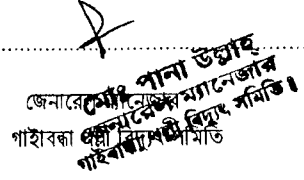 মোঃ পানা উল্লাহ
জেনারেল ম্যানেজার
গাইবান্ধা পল্লী বিদ্যুৎ সমিতি।
জেনারেল ম্যানেজার
গাইবান্ধা পল্লী বিদ্যুৎ সমিতি